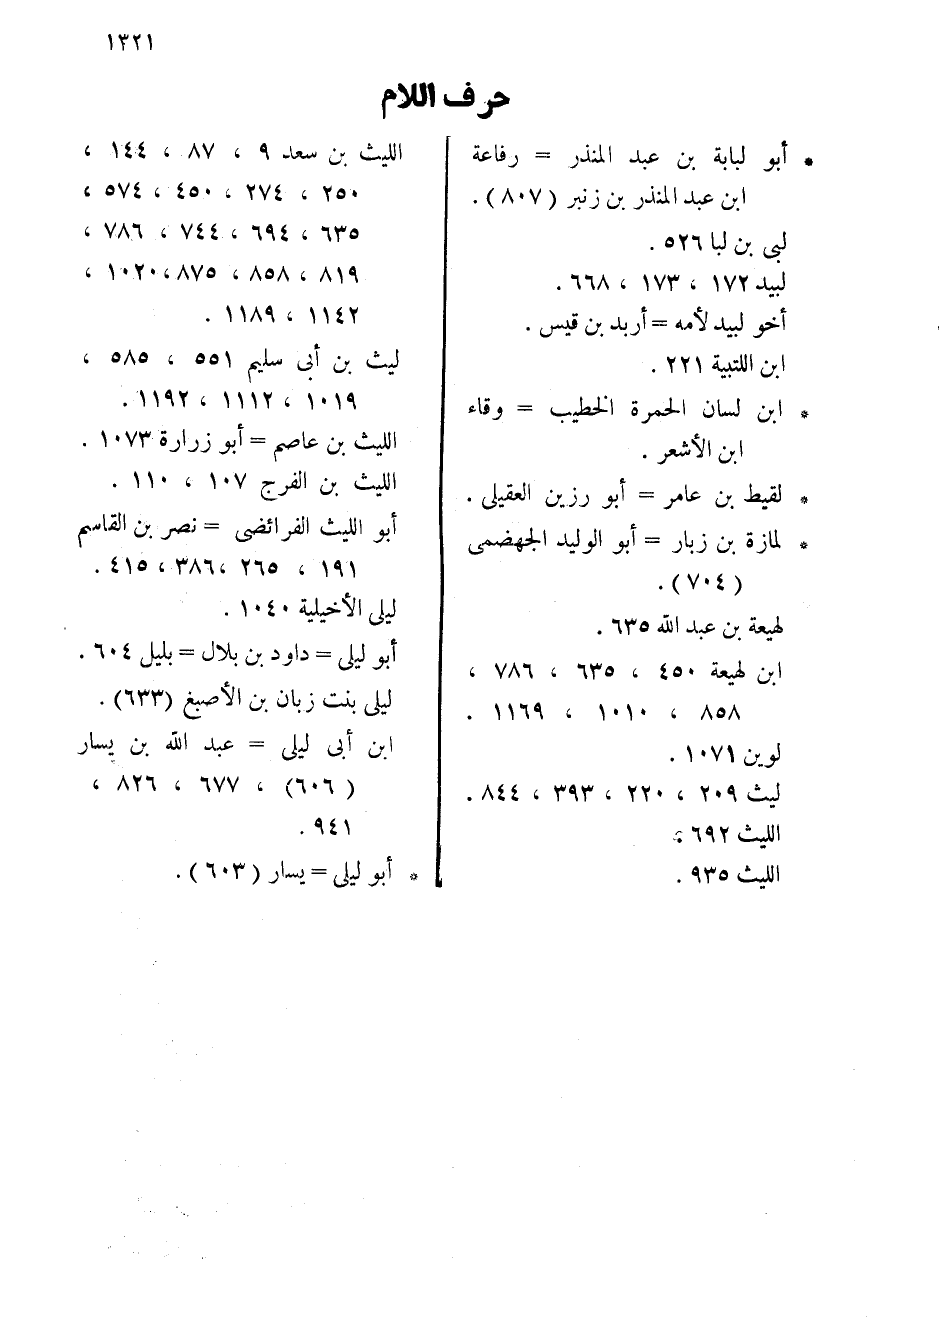 ١٣٢١
حرف اللام
* أبو لبابة بن عبد المنذر = رفاعة
ابن عبد المنذر بن زنبر (٨٠٧) .
لبى بن لبا ٥٢٦ .
لبيد ١٧٢ ، ١٧٣ ، ٦٦٨ .
أخو لبيد لأمه = أربد بن قيس .
ابن اللتبية ٢٢١ .
* ابن لسان الحمرة الخطيب = وقاء
ابن الأشعر .
* لقيط بن عامر = أبو رزين العقيلى .
* لمازة بن زبار = أبو الوليد الجهضمى
(٧٠٤) .
لهيعة بن عبد الله ٦٣٥ .
ابن لهيعة ٤٥٠ ، ٦٣٥ ، ٧٨٦ ،
٨٥٨ ، ١٠١٠ ، ١١٦٩ .
لوين ١٠٧١ .
ليث ٢٠٩ ، ٢٢٠ ، ٣٩٣ ، ٨٤٤ .
الليث ٦٩٢ .
الليث ٩٣٥ .
الليث بن سعد ٩ ، ٨٧ ، ١٤٤ ،
٢٥٠ ، ٢٧٤ ، ٤٥٠ ، ٥٧٤ ،
٦٣٥ ، ٦٩٤ ، ٧٤٤ ، ٧٨٦ ،
٨١٩ ، ٨٥٨ ، ٨٧٥ ، ١٠٢٠ ،
١١٤٢ ، ١١٨٩ .
ليث بن أبى سليم ٥٥١ ، ٥٨٥ ،
١٠١٩ ، ١١١٢ ، ١١٩٢ .
الليث بن عاصم = أبو زرارة ١٠٧٣ .
الليث بن الفرج ١٠٧ ، ١١٠ .
أبو الليث الفرائضى = نصر بن القاسم
١٩١ ، ٢٦٥ ، ٣٨٦ ، ٤١٥ .
ليلى الأخيلية ١٠٤٠ .
أبو ليلى = داود بن بلال = بليل ٦٠٤ .
ليلى بنت زبان بن الأصبغ (٦٣٣) .
ابن أبى ليلى = عبد الله بن يسار
(٦٠٦) ، ٦٧٧ ، ٨٢٦ ،
٩٤١ .
* أبو ليلى = يسار (٦٠٣) .